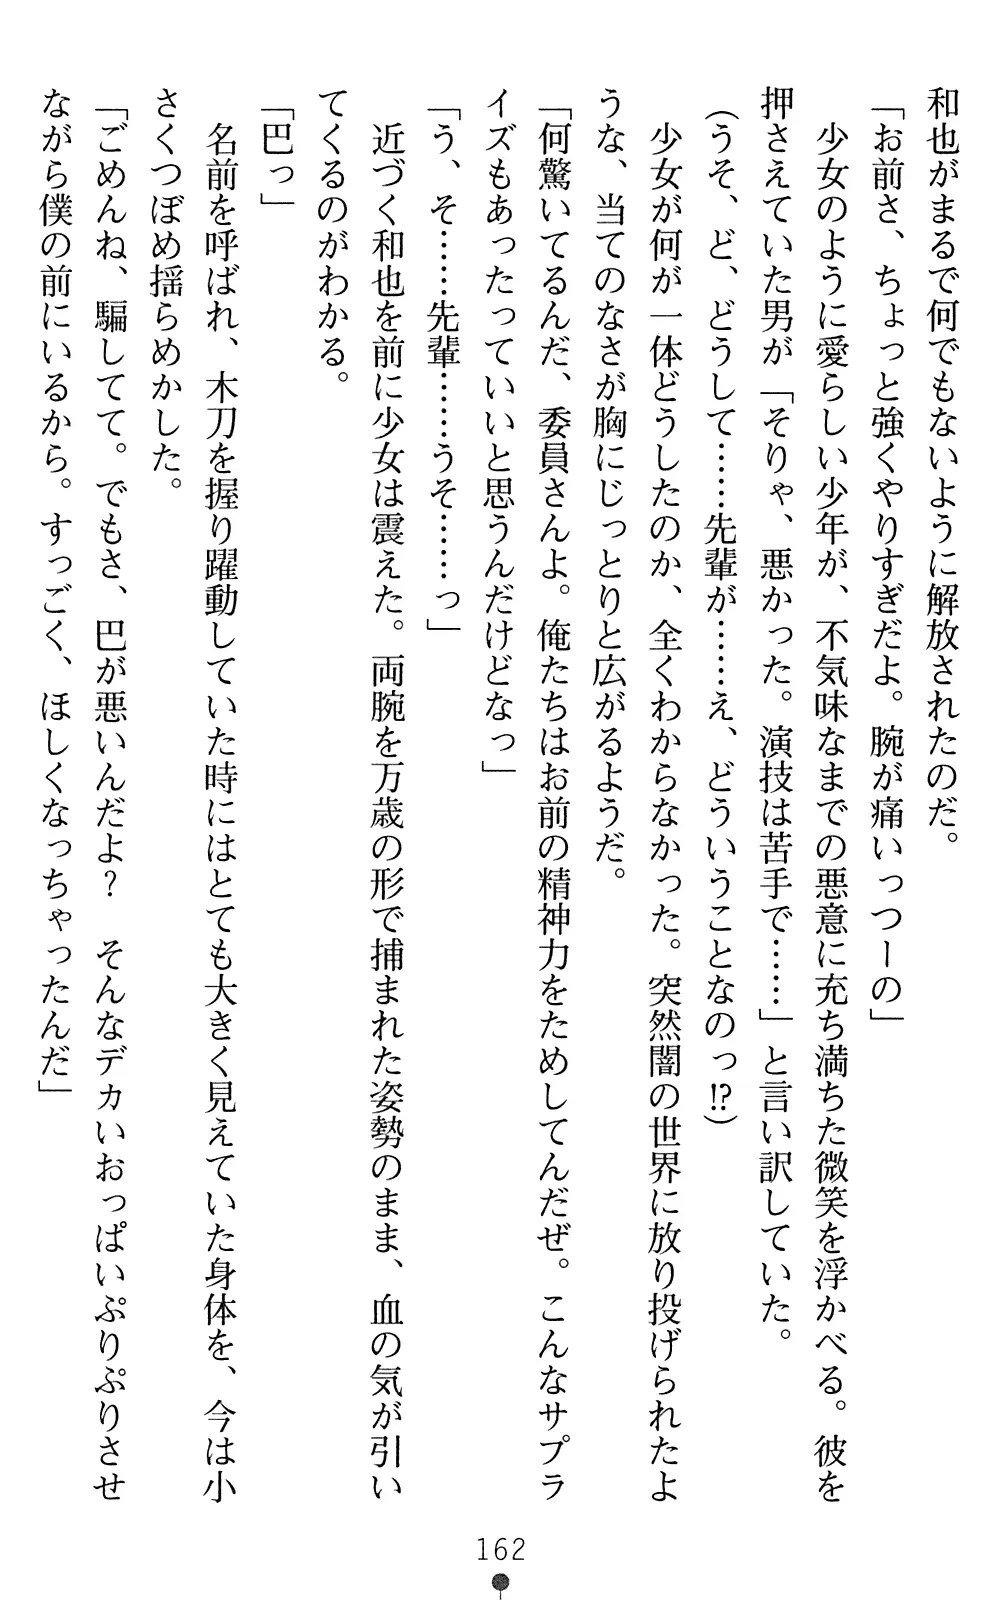 和也がまるで何でもないように解放されたのだ。
「お前さ、ちょっと強くやりすぎだよ。腕が痛いっつーの」
少女のように愛らしい少年が、不気味なまでの悪意に充ち満ちた微笑を浮かべる。彼を
押さえていた男が「そりゃ、悪かった。演技は苦手で……」と言い訳していた。
(うそ、ど、どうして……先輩が……え、どういうことなのっ!?)
少女が何が一体どうしたのか、全くわからなかった。突然闇の世界に放り投げられたよ
うな、当てのなさが胸にじっとりと広がるようだ。
「何驚いてるんだ、委員さんよ。俺たちはお前の精神力をためしてんだぜ。こんなサプラ
イズもあったっていいと思うんだけどなっ」
「う、そ……先輩……うそ……っ」
近づく和也を前に少女は震えた。両腕を万歳の形で捕まれた姿勢のまま、血の気が引い
てくるのがわかる。
「巴っ」
名前を呼ばれ、木刀を握り躍動していた時にはとても大きく見えていた身体を、今は小
さくつぼめ揺らめかした。
162